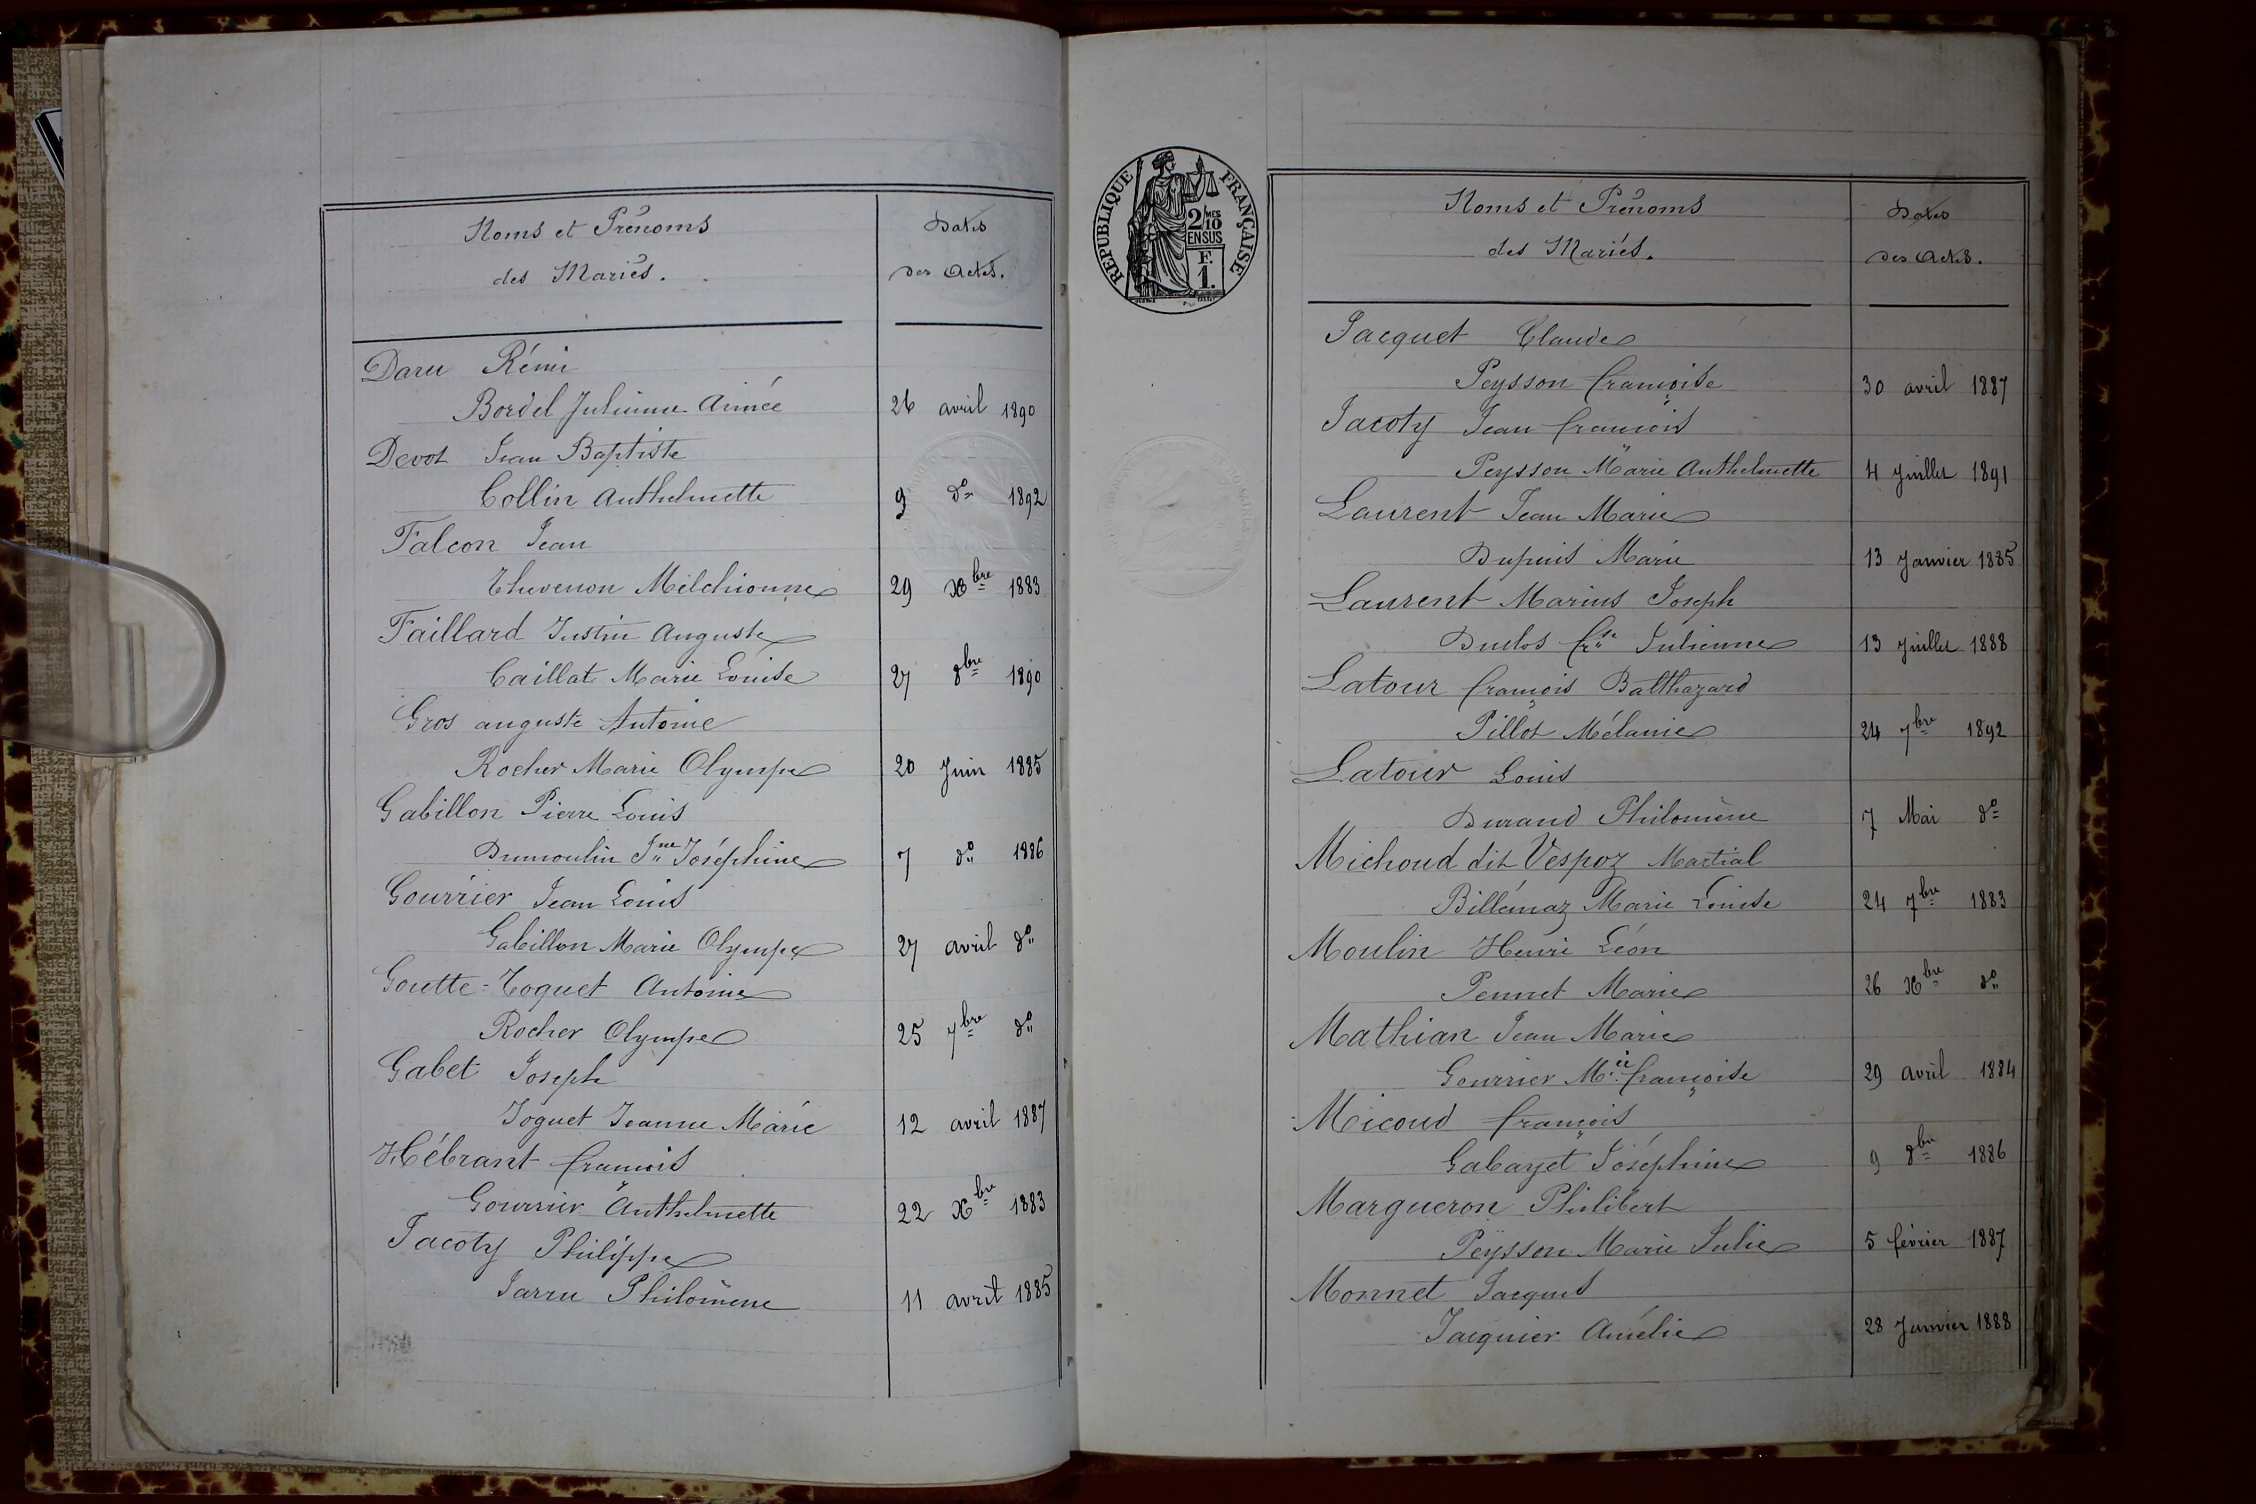 Noms et Prénoms
des Mariés.
Dates
des Actes.
Daru Rémi
Bordel Julienne Aimée 26 avril 1890
Devot Jean Baptiste
Collin Anthelmette 9 do 1892
Falcon Jean
Thevenon Melchionne 29 Xbre 1883
Faillard Justin Auguste
Caillat Marie Louise 27 8bre 1890
Gros auguste Antoine
Rocher Marie Olympe 20 Juin 1885
Gabillon Pierre Louis
Dumoulin Jne Joséphine 7 do 1886
Gourrier Jean Louis
Gabillon Marie Olympe 27 avril do
Goutte-Toquet Antoine
Rocher Olympe 25 7bre do
Gabet Joseph
Joguet Jeanne Marie 12 avril 1887
Hébrant françois
Gourrier Anthelmette 22 Xbre 1883
Jacoty Philippe
Jarru Philomène 11 avril 1885
RÉPUBLIQUE FRANÇAISE
2/10 MES
EN SUS
F.
1.
Noms et Prénoms
des Mariés.
Dates
des Actes.
Jacquet Claude
Peysson françoise 30 avril 1887
Jacoty Jean françois
Peysson Marie Anthelmette 4 Juillet 1891
Laurent Jean Marie
Dupuis Marie 13 Janvier 1885
Laurent Marius Joseph
Duclos fse Julienne 13 Juillet 1888
Latour françois Balthazard
Pillot Mélanie 24 7bre 1892
Latour Louis
Durand Philomène 7 Mai do
Michoud dit Vespoz Martial
Billémaz Marie Louise 24 7bre 1883
Moulin Henri Léon
Pennet Marie 26 Xbre do
Mathian Jean Marie
Gourrier Mie françoise 29 avril 1884
Micoud françois
Gabayet Joséphine 9 8bre 1886
Margueron Philibert
Peysson Marie Julie 5 février 1887
Monnet Jacques
Jacquier Amélie 28 Janvier 1888